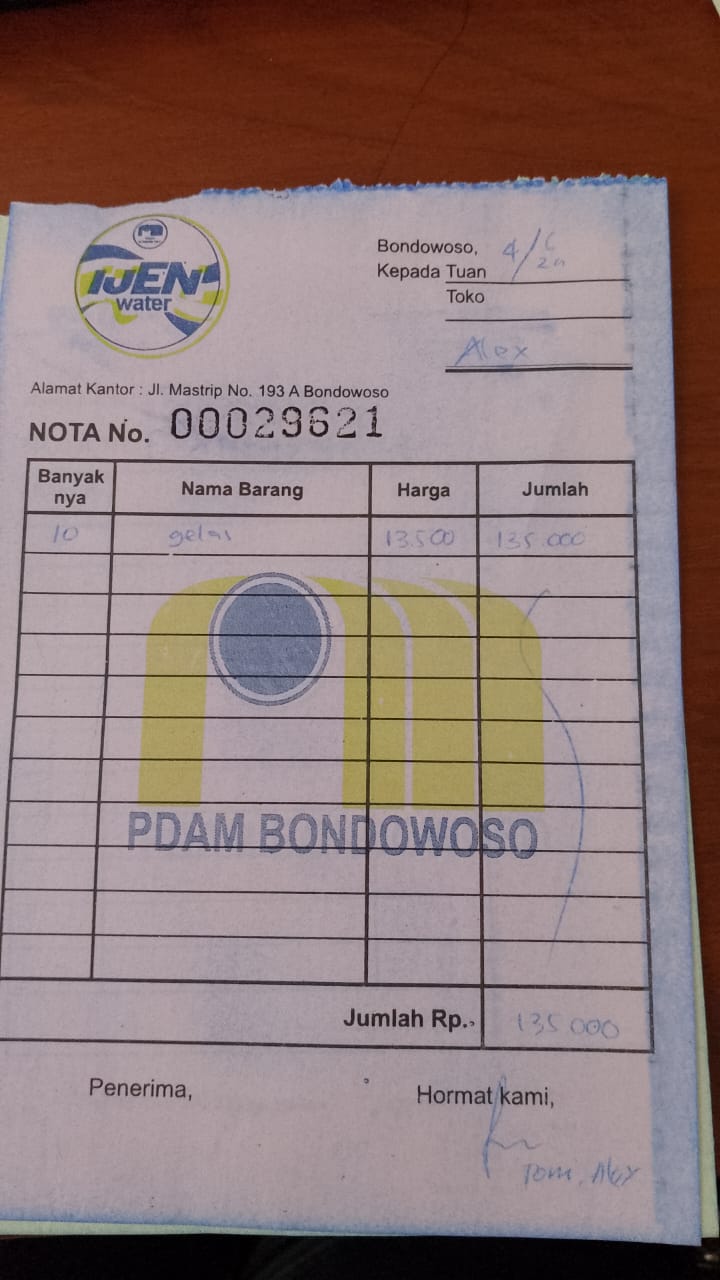 IJEN
water
Bondowoso, 4/6
Kepada Tuan
Toko
Alex
Alamat Kantor : Jl. Mastrip No. 193 A Bondowoso
NOTA No. 00029621
Banyak nya Nama Barang Harga Jumlah
10 gelas 13.500 135.000
PDAM BONDOWOSO
Jumlah Rp. 135.000
Penerima, Hormat kami,
Alex